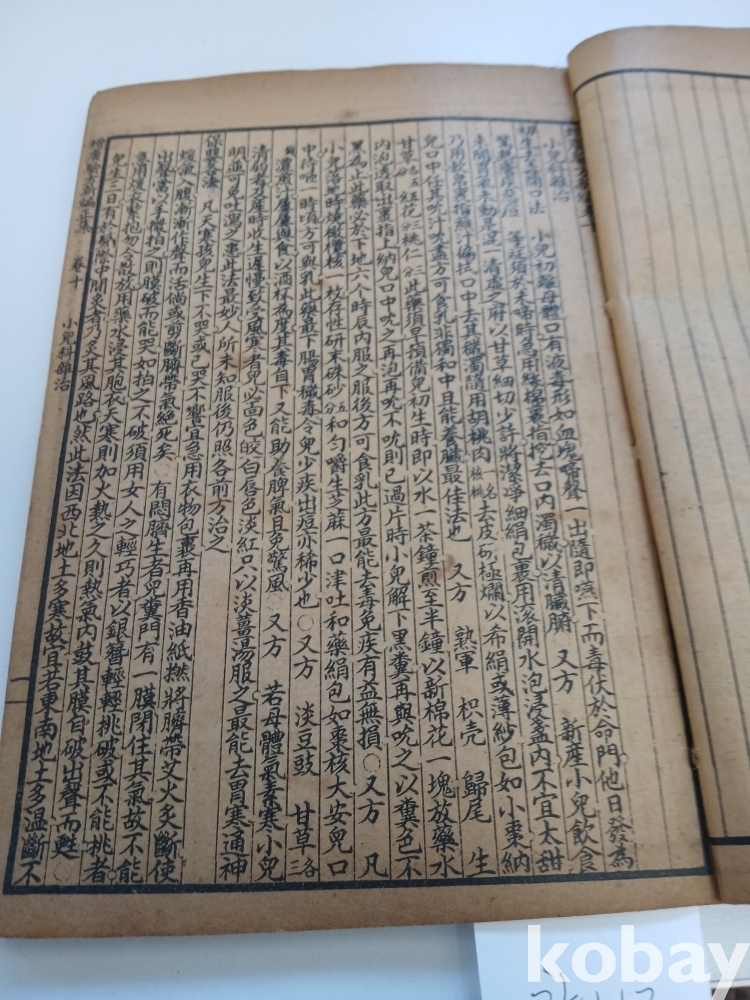 小兒科雜治
小兒初離母體口有液毒形如血塊啼聲一出隨即嚥下而毒伏於命門他日發為
等症須於未啼時急用綿裹指拎去口內濁穢以清臟腑　又方　新產小兒飲食
未開胃氣未動是一清虛之府以甘草細切少許將潔凈細絹包裹用滾開水泡浸盞內不宜太甜
乃用軟帛裹指蘸汁偏拭口中去其穢濁隨用胡桃肉核桃名去皮研極爛以希絹或薄紗包如小棗納
兒口中使其吮汁吮盡方可食乳非獨和中且能養臟最佳法也　又方　熟軍　枳壳　歸尾　生
甘草五分紅花三分桃仁三分此藥須早預備兒初生時即以水一茶鐘煎至半鐘以新棉花一塊放藥水
內泡透取出裹指上納兒口中吮之再泡再吮不吮則已過片時小兒解下黑糞再與吮之以糞色不
黑為止此藥必於下地六個時辰內服之服後方可食乳此方最能去毒免疾有益無損〇又方　凡
小兒落地時燒橄欖核一枚存性研末硃砂五分和勻嚼生芝麻一口津吐和藥絹包如棗核大安兒口
中待咂一時頃方可與乳此藥最下腸胃穢毒令兒少疾出痘亦稀少也〇又方　淡豆豉　甘草各三
錢濃煎汁與食以酒杯為度其毒自下又能助養脾氣且免驚風〇又方　若母體氣素寒小兒
清弱者產時收生遲慢致受風寒者兒必面色皎白唇色淡紅只以淡薑湯服之最能去胃寒通神
明並可免吐瀉之患此法最妙人所未知服後仍照各前方治之
保嬰各法　凡天寒孩兒生下不哭或已哭不響宜急用衣物包裹再用香油紙撚將臍帶艾火炙斷使
煖氣入腹漸漸作聲而活倘或剪斷臍帶氣絕死矣〇有悶臍生者兒糞門有一膜閉住其氣故不能
出聲當以手微拍之則膜破而能哭如拍之不破須用女人之輕巧者以銀簪輕輕挑破或不能挑者
急用煖衣緊抱勿令散放用藥水浸其胞衣天寒則加火熱之久則熱氣內鼓其膜自破出聲而甦〇
兒生三日有於臍際中開灸者乃灸其風路也然此法因西北地土多寒故宜若東南地土多溫斷不
增廣驗方新編　卷十　小兒科雜治　一
kobay